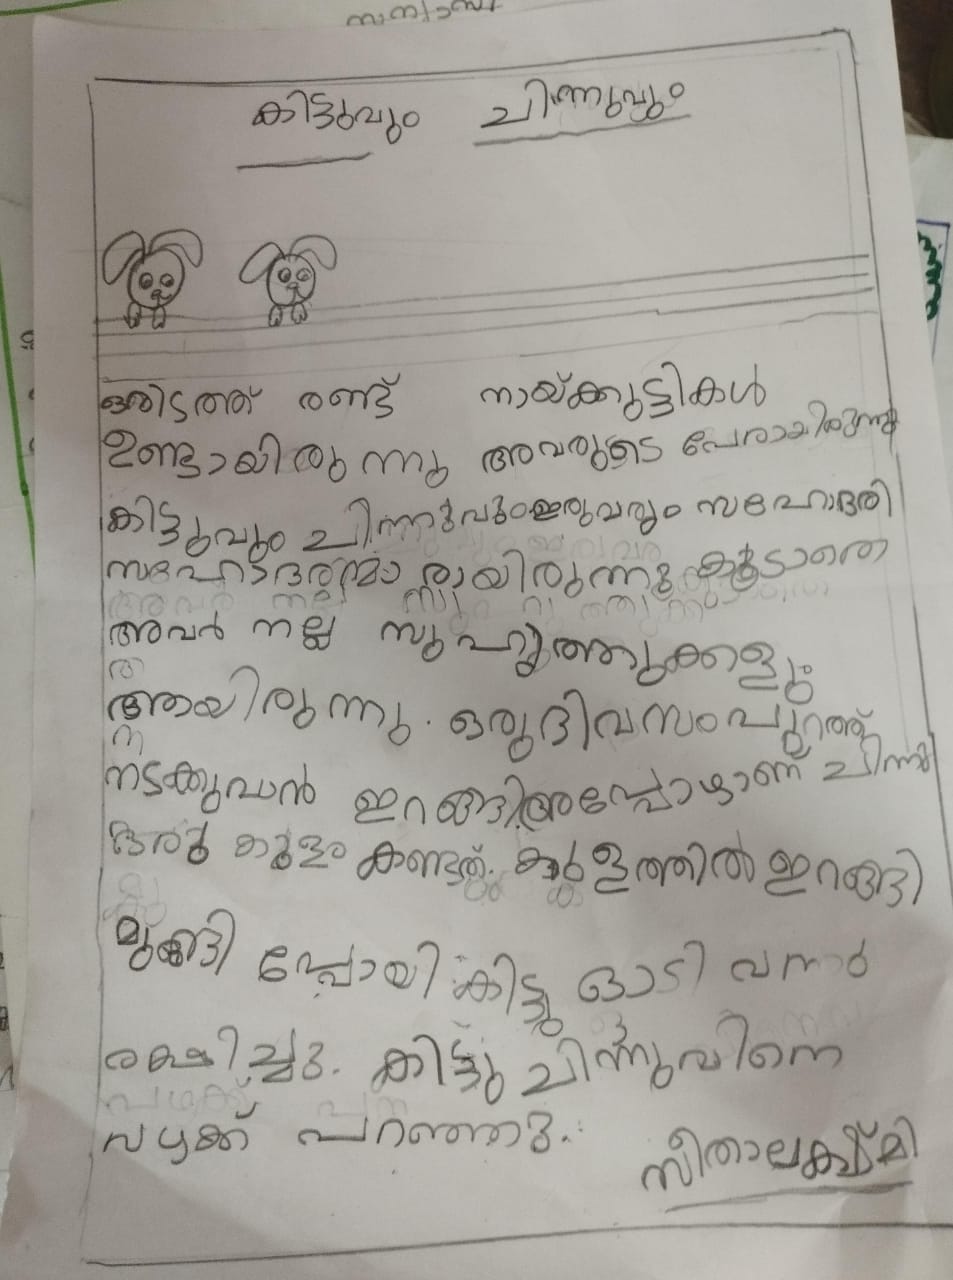 കിട്ടുവും ചിന്നുവും
ഒരിടത്ത് രണ്ട് നായ്ക്കുട്ടികൾ
ഉണ്ടായിരുന്നു അവരുടെ പേരായിരുന്നു
കിട്ടുവും ചിന്നുവും ഇരുവരും സഹോദരി
സഹോദരന്മാരായിരുന്നു കൂടാതെ
അവർ നല്ല സുഹൃത്തുക്കളും
ആയിരുന്നു. ഒരുദിവസം പുറത്ത്
നടക്കുവാൻ ഇറങ്ങി അപ്പോഴാണ് ചിന്നു
ഒരു കുളം കണ്ടത്. കുളത്തിൽ ഇറങ്ങി
മുങ്ങി പ്പോയി കിട്ടു ഓടി വന്നാർ
രക്ഷിച്ചു. കിട്ടു ചിന്നുവിനെ
വഴക്ക് പറഞ്ഞു.
സീതാലക്ഷ്മി